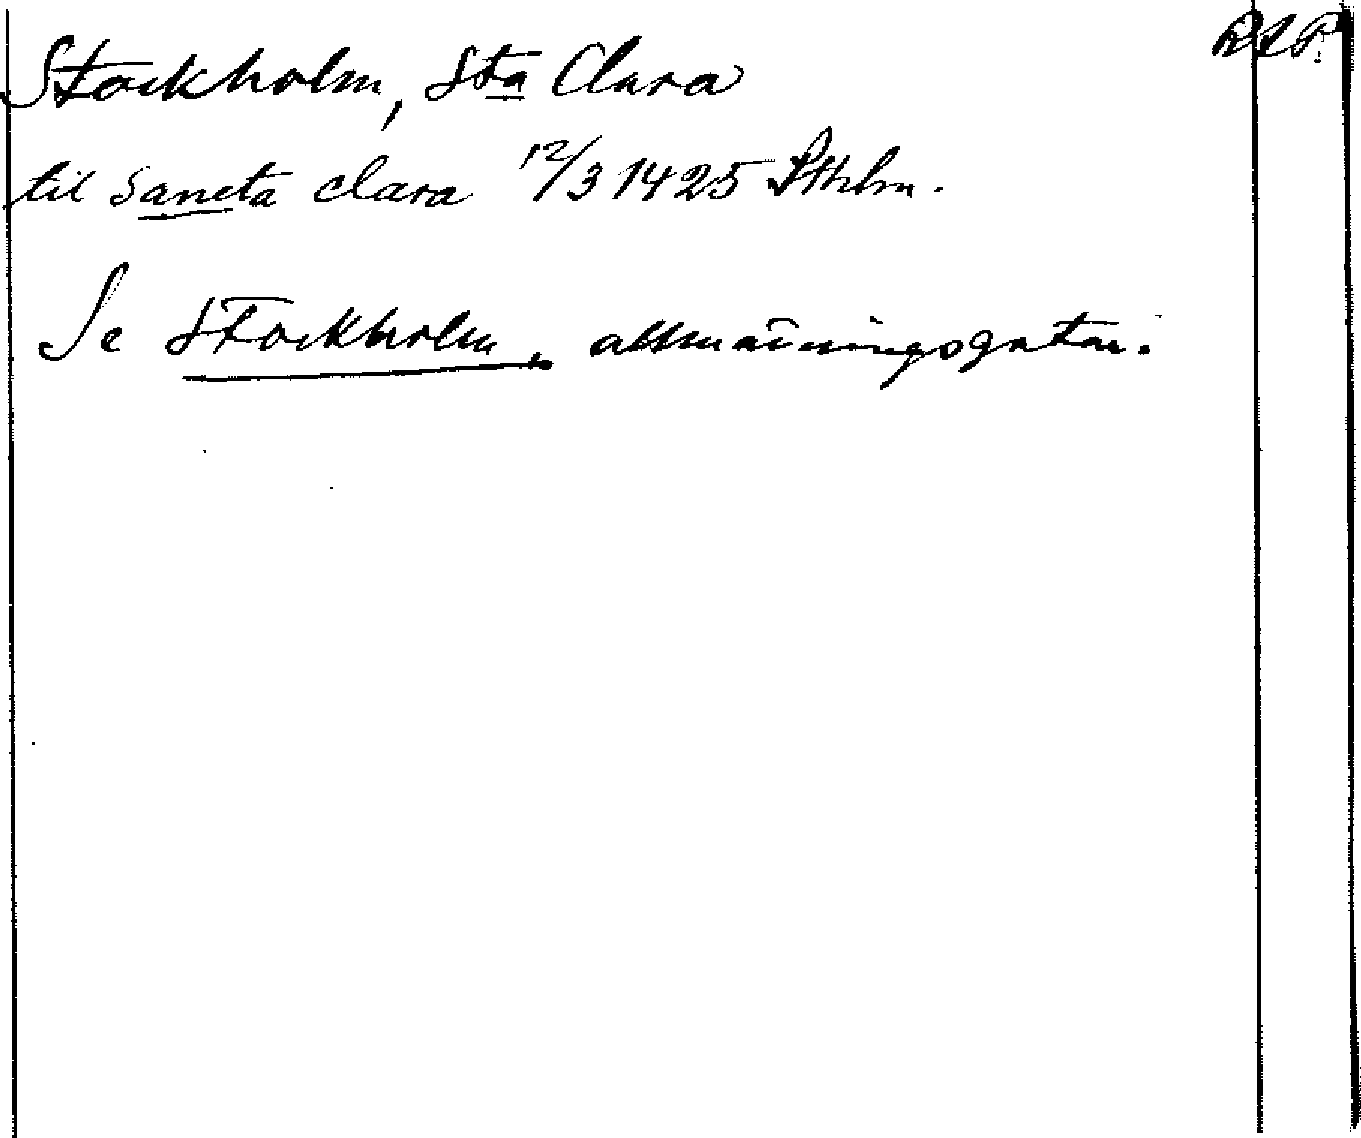 Stockholm, Sta Clara
RAP.
til sancta clara 12/3 1425 Sthlm.
Se Stockholm, allmänningsgatan.